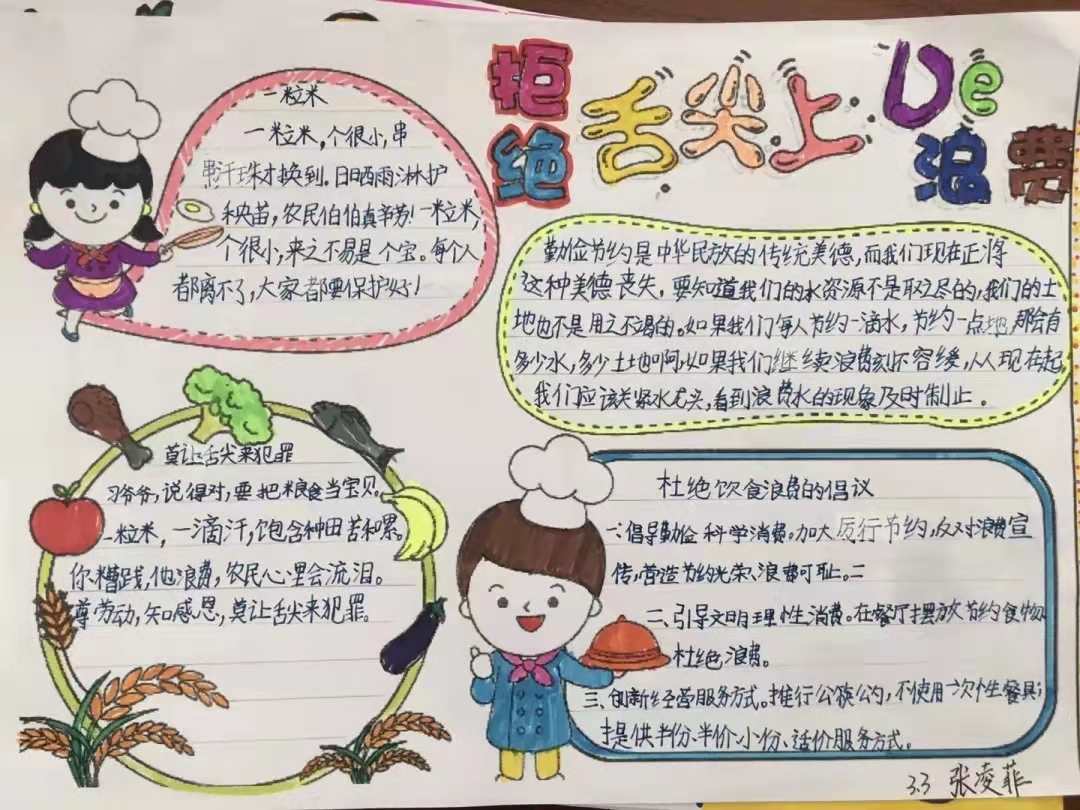 拒绝
舌尖上De
浪费
一粒米
一粒米,个很小,串
串汗珠才换到。日晒雨淋护
秧苗,农民伯伯真辛劳!一粒米,
个很小,来之不易是个宝。每个人
都离不了,大家都要保护好!
勤俭节约是中华民放的传统美德,而我们现在正将
这种美德丧失,要知道我们的水资源不是取之尽的,我们的土
地也不是用之不竭的。如果我们每人节约一滴水,节约一点地,那会有
多少水,多少土地啊,如果我们继续浪费刻不容缓,从现在起,
我们应该关紧水龙头,看到浪费水的现象及时制止。
莫让舌尖来犯罪
习爷爷,说得对,要把粮食当宝贝。
一粒米,一滴汗,饱含种田苦和累。
你糟践,他浪费,农民心里会流泪。
尊劳动,知感恩,莫让舌尖来犯罪。
杜绝饮食浪费的倡议
一:倡导勤俭科学消费。加大厉行节约,反对浪费宣
传,营造节约光荣、浪费可耻。二
二、引导文明理性消费。在餐厅摆放节约食物
杜绝浪费。
三、创新经营服务方式。推行公筷公勺,不使用一次性餐具;
提供半份、半价、小份、适价服务方式。
3.3 张凌菲